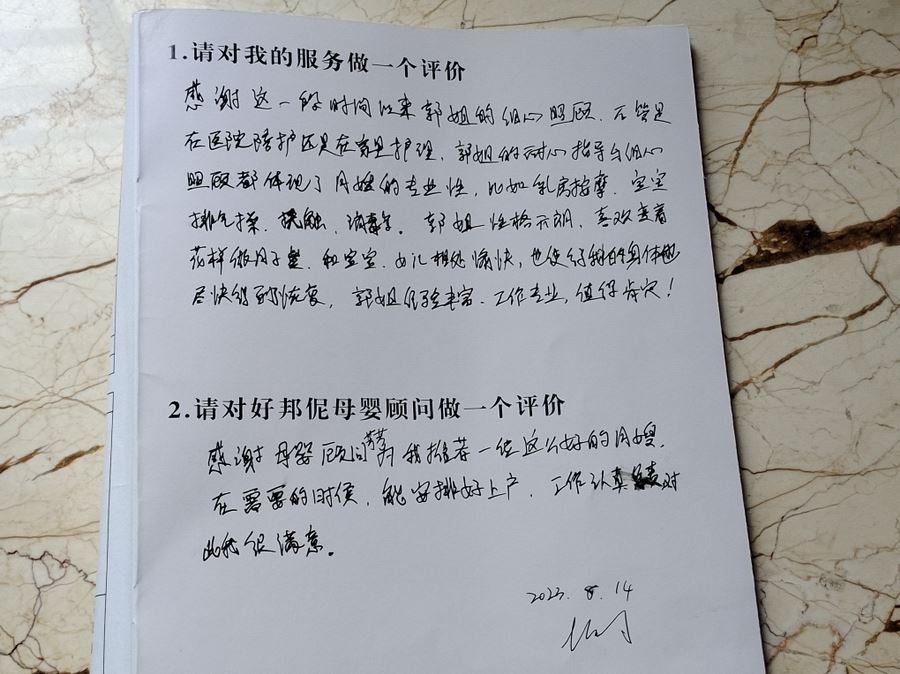 1.请对我的服务做一个评价
感谢这一段时间以来郭姐的细心照顾.不管是
在医院陪护还是在家里护理.郭姐的耐心指导与细心
照顾都体现了月嫂的专业性,比如乳房按摩.宝宝
排气操.抚触.消毒等.郭姐性格开朗.喜欢变着
花样做月子餐.和宝宝.女儿相处愉快,也使得我的身体
尽快得到恢复,郭姐经验丰富.工作专业,值得肯定!
2.请对好邦伲母婴顾问做一个评价
感谢母婴顾问为我推荐一位这么好的月嫂.
在需要的时侯,能安排好上户.工作认真负责对
此我很满意。
2023.8.14